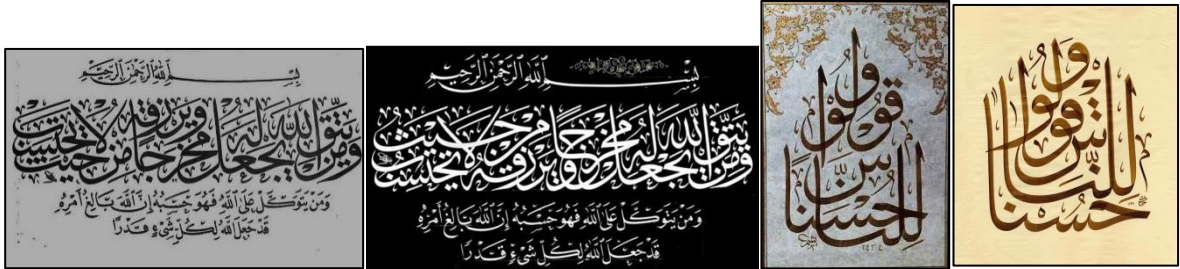 بسم الله الرحمن الرحيم
ومن يتق الله يجعل له مخرجا ويرزقه من حيث لا يحتسب
ومن يتوكل على الله فهو حسبه إن الله بالغ أمره
قد جعل الله لكل شيء قدرا
بسم الله الرحمن الرحيم
ومن يتق الله يجعل له مخرجا ويرزقه من حيث لا يحتسب
ومن يتوكل على الله فهو حسبه إن الله بالغ أمره
قد جعل الله لكل شيء قدرا
وقولوا للناس حسنا
وقولوا للناس حسنا